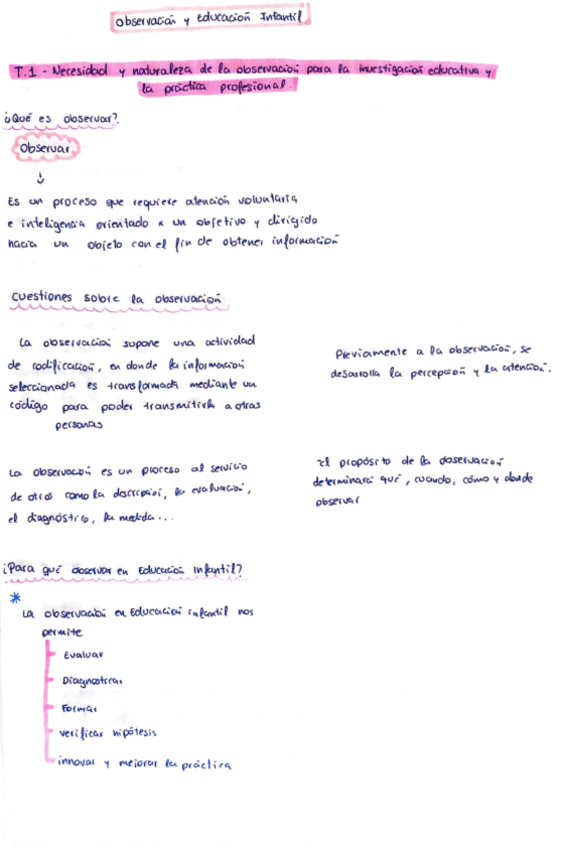 Observación y Educación Infantil
T.1 - Necesidad y naturaleza de la observación para la investigación educativa y
la práctica profesional.
¿Qué es observar?
Observar
Es un proceso que requiere atención voluntaria
e inteligencia orientado x un objetivo y dirigido
hacia un objeto con el fin de obtener información
Cuestiones sobre la observación
La observación supone una actividad
de codificación, en donde la información
seleccionada es transformada mediante un
código para poder transmitirla a otras
personas
Previamente a la observación, se
desarrolla la percepción y la atención.
La observación es un proceso al servicio
de otros como la descripción, la evaluación,
el diagnóstico, la medida...
El propósito de la observación
determinará qué, cuando, cómo y donde
observar
¿Para qué observar en Educación Infantil?
*
La observación en Educación infantil nos
permite
Evaluar
Diagnosticar
Formar
verificar hipótesis
innovar y mejorar la práctica